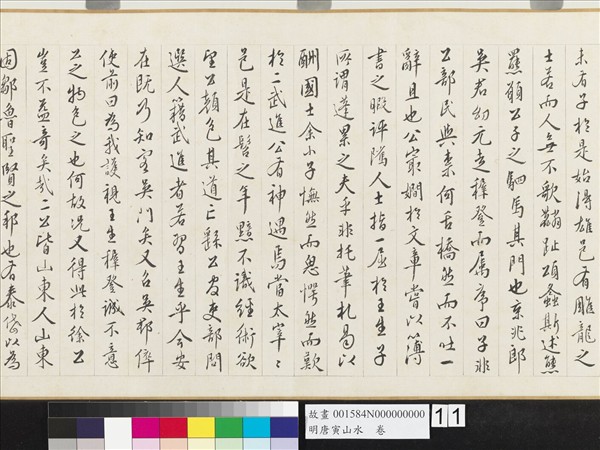 未有子於是始得雄邑有雕龍之
士若而人無不歌麟趾頌螽斯述熊
羆頌公子之駟馬其門也京兆郎
吳君幼元走穉登而屬序曰子非
公部民與柰何舌撟然而不吐一
辭且也公最嫺於文章嘗以簿
書之暇評隲人士指一屈於王生子
所謂蓬累之夫乎非托筆札曷以
酬國士余小子憮然而思愕然而歎
於二武進公有神遇焉當太宰々
邑是在髫之年黯不識經術欲
望公顏色其道亡繇公官吏部問
選人籍武進者若習王生乎今安
在既乃知客吳門矣又召吳郡倅
使前曰為我護視王生穉登誠不意
公之物色之也何故況又得此於徐公
豈不益奇矣哉二公皆山東人山東
固鄒魯聖賢之邦也有泰岱以為
故畫 001584N000000000
明唐寅山水 卷
11